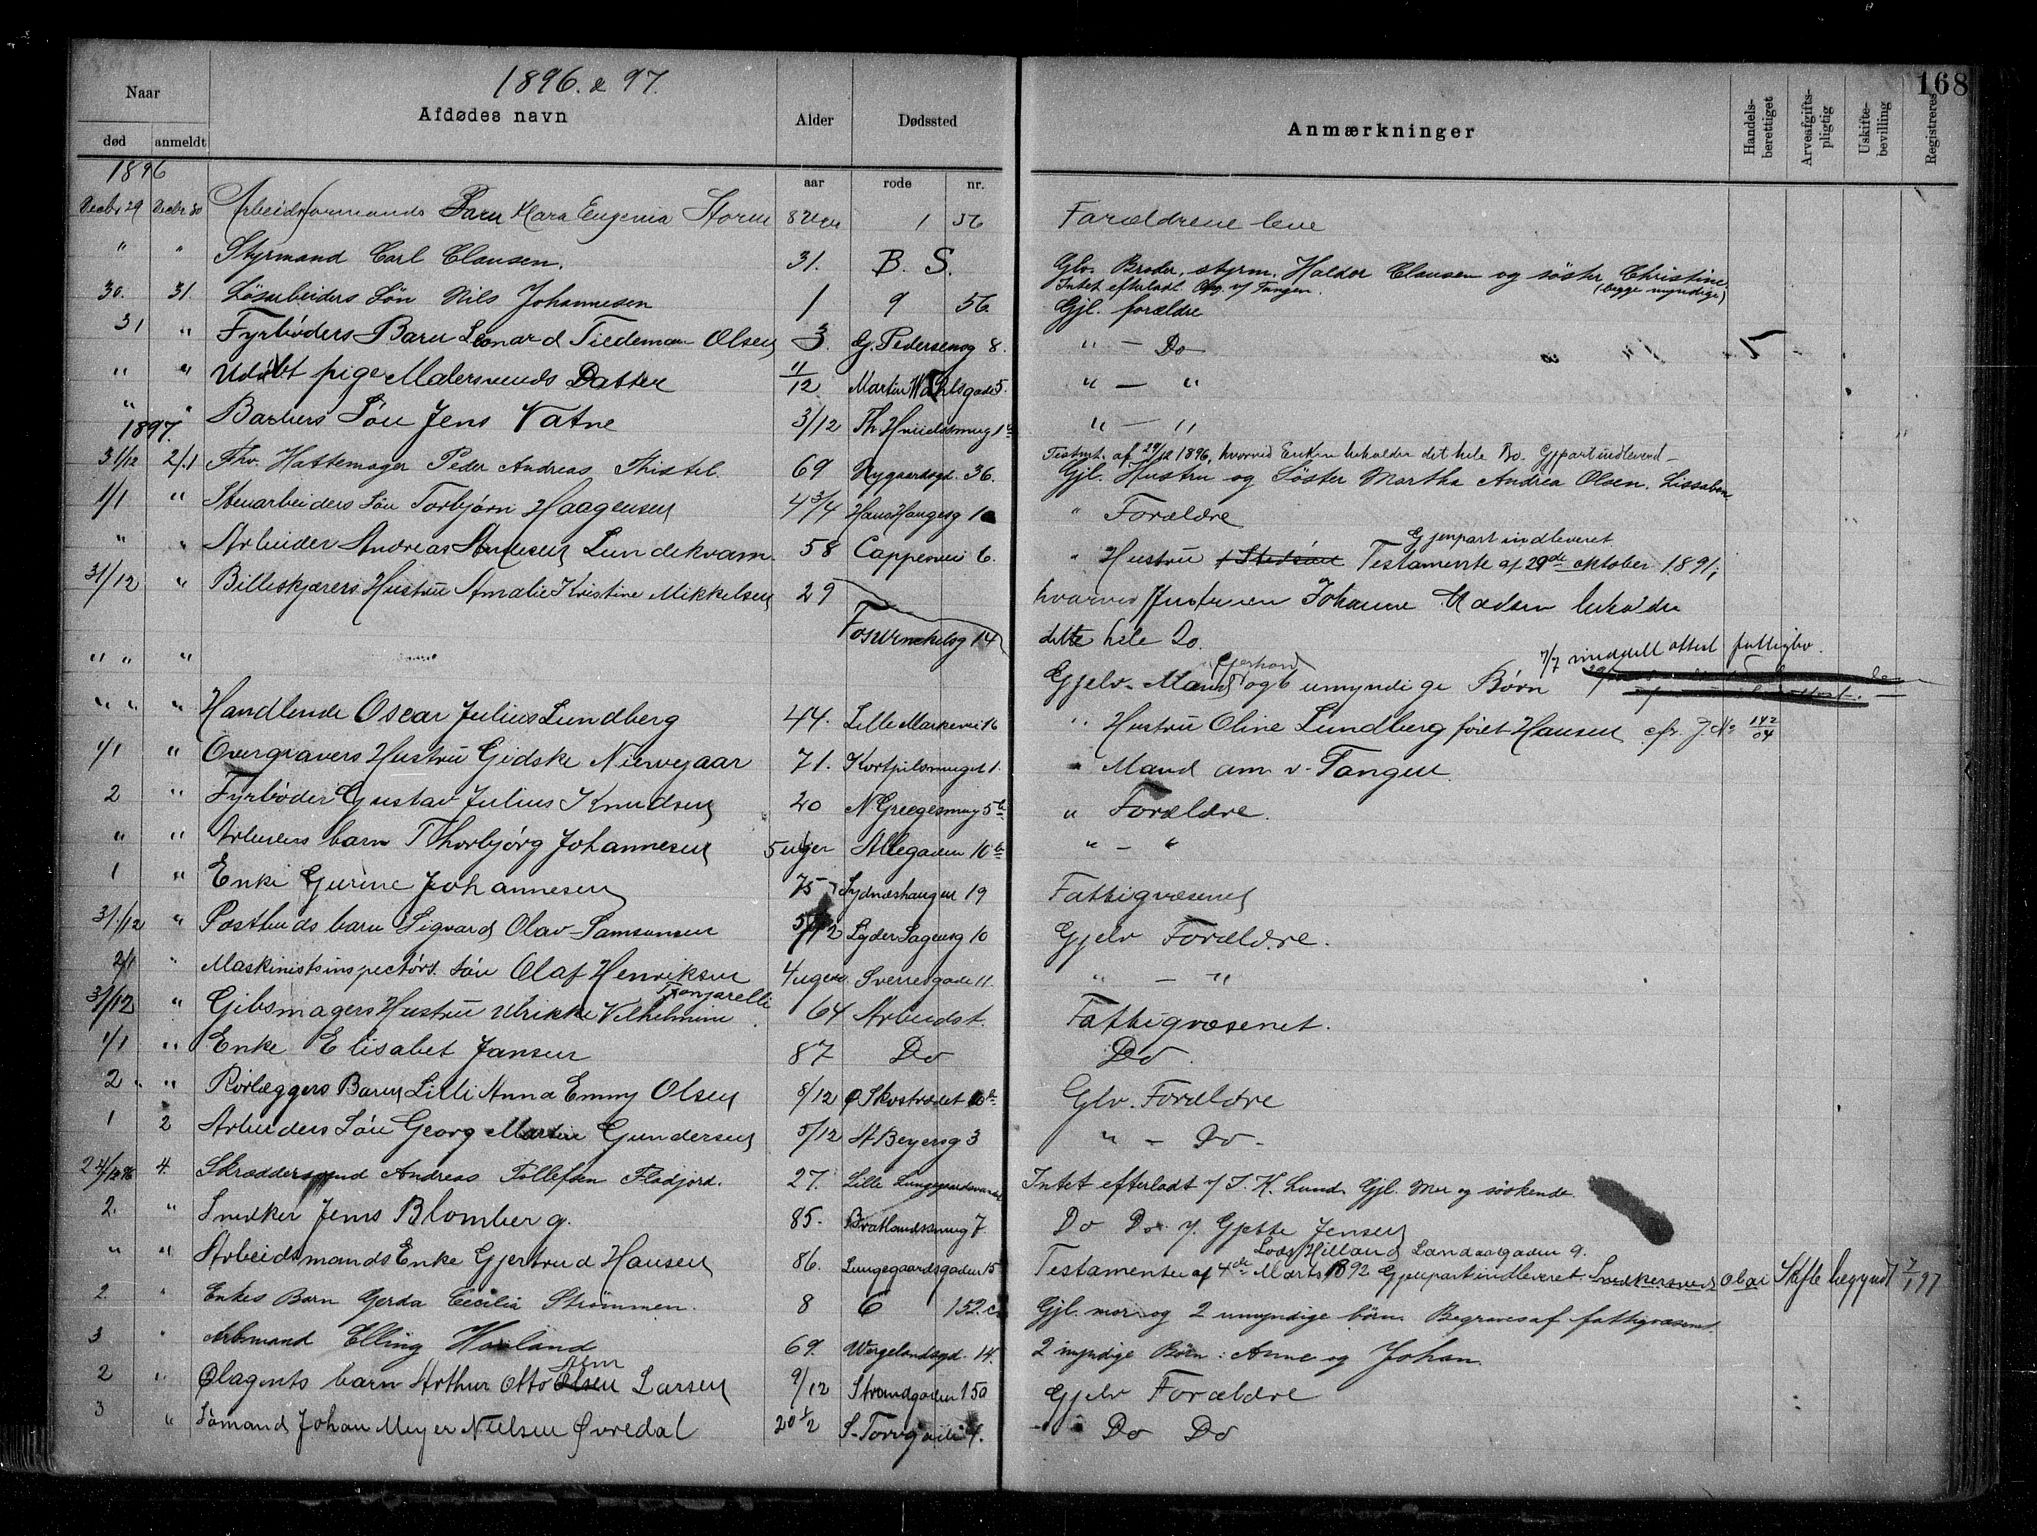 168
1896. & 97.
Naar
død
anmeldt
Afdødes navn
Alder
aar
Dødssted
rode
nr.
Anmærkninger
Handels-berettiget
Arveafgifts-pligtig
Uskifte-bevilling
Registreres
1896
Decbr 29 Decbr 30 Arbeidsformands Barn Klara Eugenia Storm 8 Uger 1 56 Forældrene leve
" " Styrmand Carl Clausen. 31. B. S. Glv. Broder, styrm. Haldor Clausen og søster Christine. (begge myndige)
Intet efterladt. Opg. v/ Tangen.
30. 31. Løsarbeiders Søn Nils Johannesen 1 9 56. Gjl. forældre
31 " Fyrbøders Barn Leonard Tiedeman Olsen 3. G. Pedersensg 8. " — Do —
" " Udøbt pige Malersvends Datter 11/12 Martin Wahlsgade 5. " — "
" " Barbers Søn Jens Vatne 3/12 Th. Smug 1 b " — "
1897.
31/12 2/1 Fhv. Hattemager Peder Andreas Thistel. 69 Nygaardsgd. 36. Testmt. af 29/12 1896, hvorved Enken beholder det hele Bo. Gjpart indleveret —
Gjl. Hustru og Søster Martha Andrea Olsen. Lissabon
1/1 " Stenarbeiders Søn Torbjørn Haagensen 4 3/4 Hans Haugesg 10 " Forældre
" " Arbeider Andreas Andersen Lundekvam. 58 Cappenvei 6. " Hustru + Stedsøn Testamente af 29de oktober 1891,
Gjenpart indleveret
31/12 " Billeskjærers Hustru Amalie Kristine Mikkelsen 29 hvorved Hustruen Johanne Madsen beholder
Fosswinckelsg 14 dette hele Bo.
" " " Gjelv. Mand Gjerhard og 6 umyndige Børn 7/7 meddelt attest fattigbo.
" " " Handlende Oscar Julius Lundberg 44. Lille Markevei 16 " Hustru Oline Lundberg født Hansen cfr. J. No 142/04
1/1 " Overgravers Hustru Gidske Nievejaar 71. Kortpilsmuget 1. " Mand anm v. Tangen.
2 " Fyrbøder Gustav Julius Knudsen 20 N Griegesmug 5 b. " Forældre.
" " Arbeiders barn Thorbjørg Johannesen 5 uger Allegaden 16 b " — "
1 " Enke Gurine Johannesen 75 Sydnæshaugen 19 Fattigvæsenet
31/12 " Postbuds barn Sigvard Olav Samsonsen 5/12 Lyder Sagensg 10 Gjelv Forældre.
2/1 " Maskinistsinspectørs søn Olaf Henriksen 4 uger Sverresgade 11. " — "
31/12 " Gibsmagers Hustru Ulrikke Vilhelmine Tronjarelli 64 Arbeidst. Fattigvæsenet.
1/1 " Enke Elisabet Jansen 87 Do Do.
2 " Rørlæggers Barn Lilli Anna Emmy Olsen 8/12 Ø Skostrædet 16 b Glv. Forældre
1 2 Arbeiders Søn Georg Martin Gundersen 5/12 A Beyersg 3 " — Do —
24/12 96 4. Skræddersvend Andreas Tollefsen Fladjord. 27. Lille Lungegaardsvandet Intet efterladt v/ T. K. Lund. Gjl. Mor og søskende.
2. " Snedker Jens Blomberg. 85. Bratlandssmug 7 Do Do v/ Gjette Jensen
" " Arbeidsmands Enke Gjertrud Hansen 86. Lungegaardsgaden 15 Testamente af 4de Marts 1892 Gjenpart indleveret. Snedkersvend Olai Skifte begyndt 7/1 97
Lods Hilland Landaasgaden 9.
2. " Enkes Barn Gerda Cecilia Strømmen. 8 6 152.c. Gjl. mor og 2 umyndige børn. Begraves af fattigvæsenet.
3 " Arbmand Elling Havland 69. Wergelandsgd. 14. 2 myndige Børn: Anne og Johan.
2 " Ølagents barn Arthur Otto Olsen Alm Larsen 9/12 Strandgaden 150 Gjelv Forældre
3 " Sømand Johan Meyer Nielsen Øvredal 20 1/2 S. Torvgade 4. — " Do Do